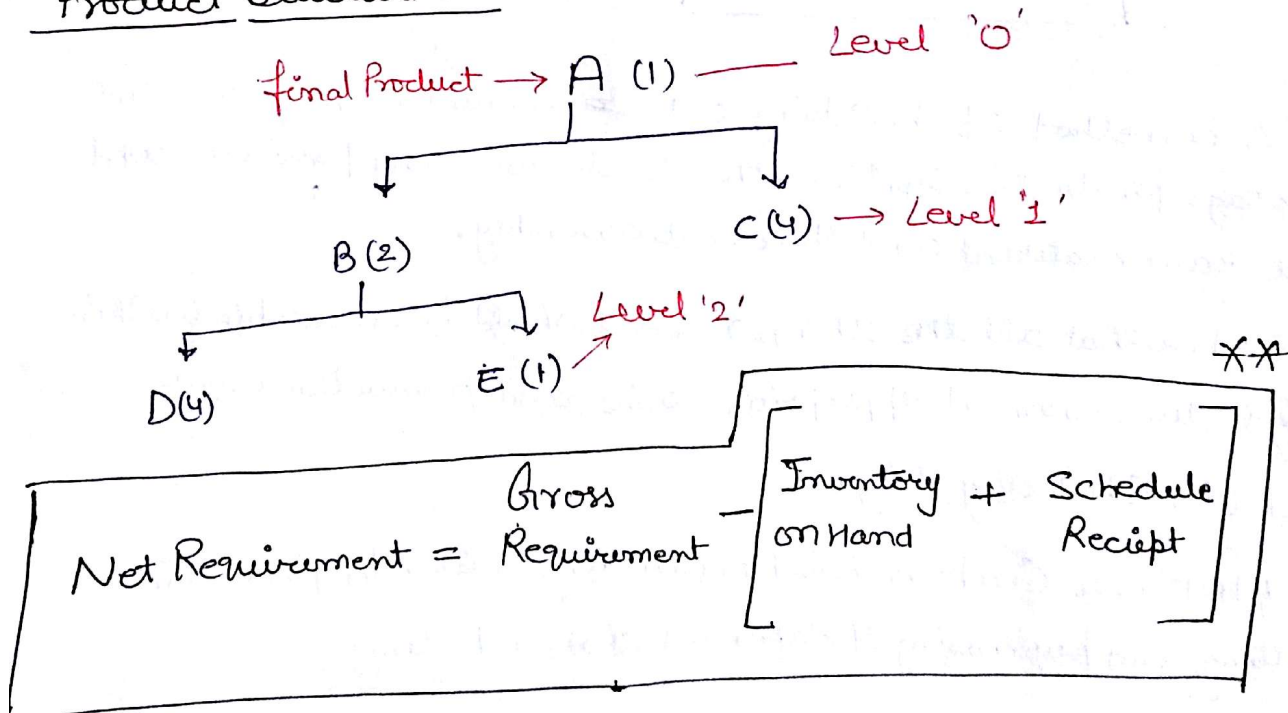 Product
final Product → A (1) — Level 'O'
B (2)
C (4) → Level '1'
Level '2'
D(4)
E (1)
**
Net Requirement = Gross Requirement - [ Inventory on Hand + Schedule Reciept ]